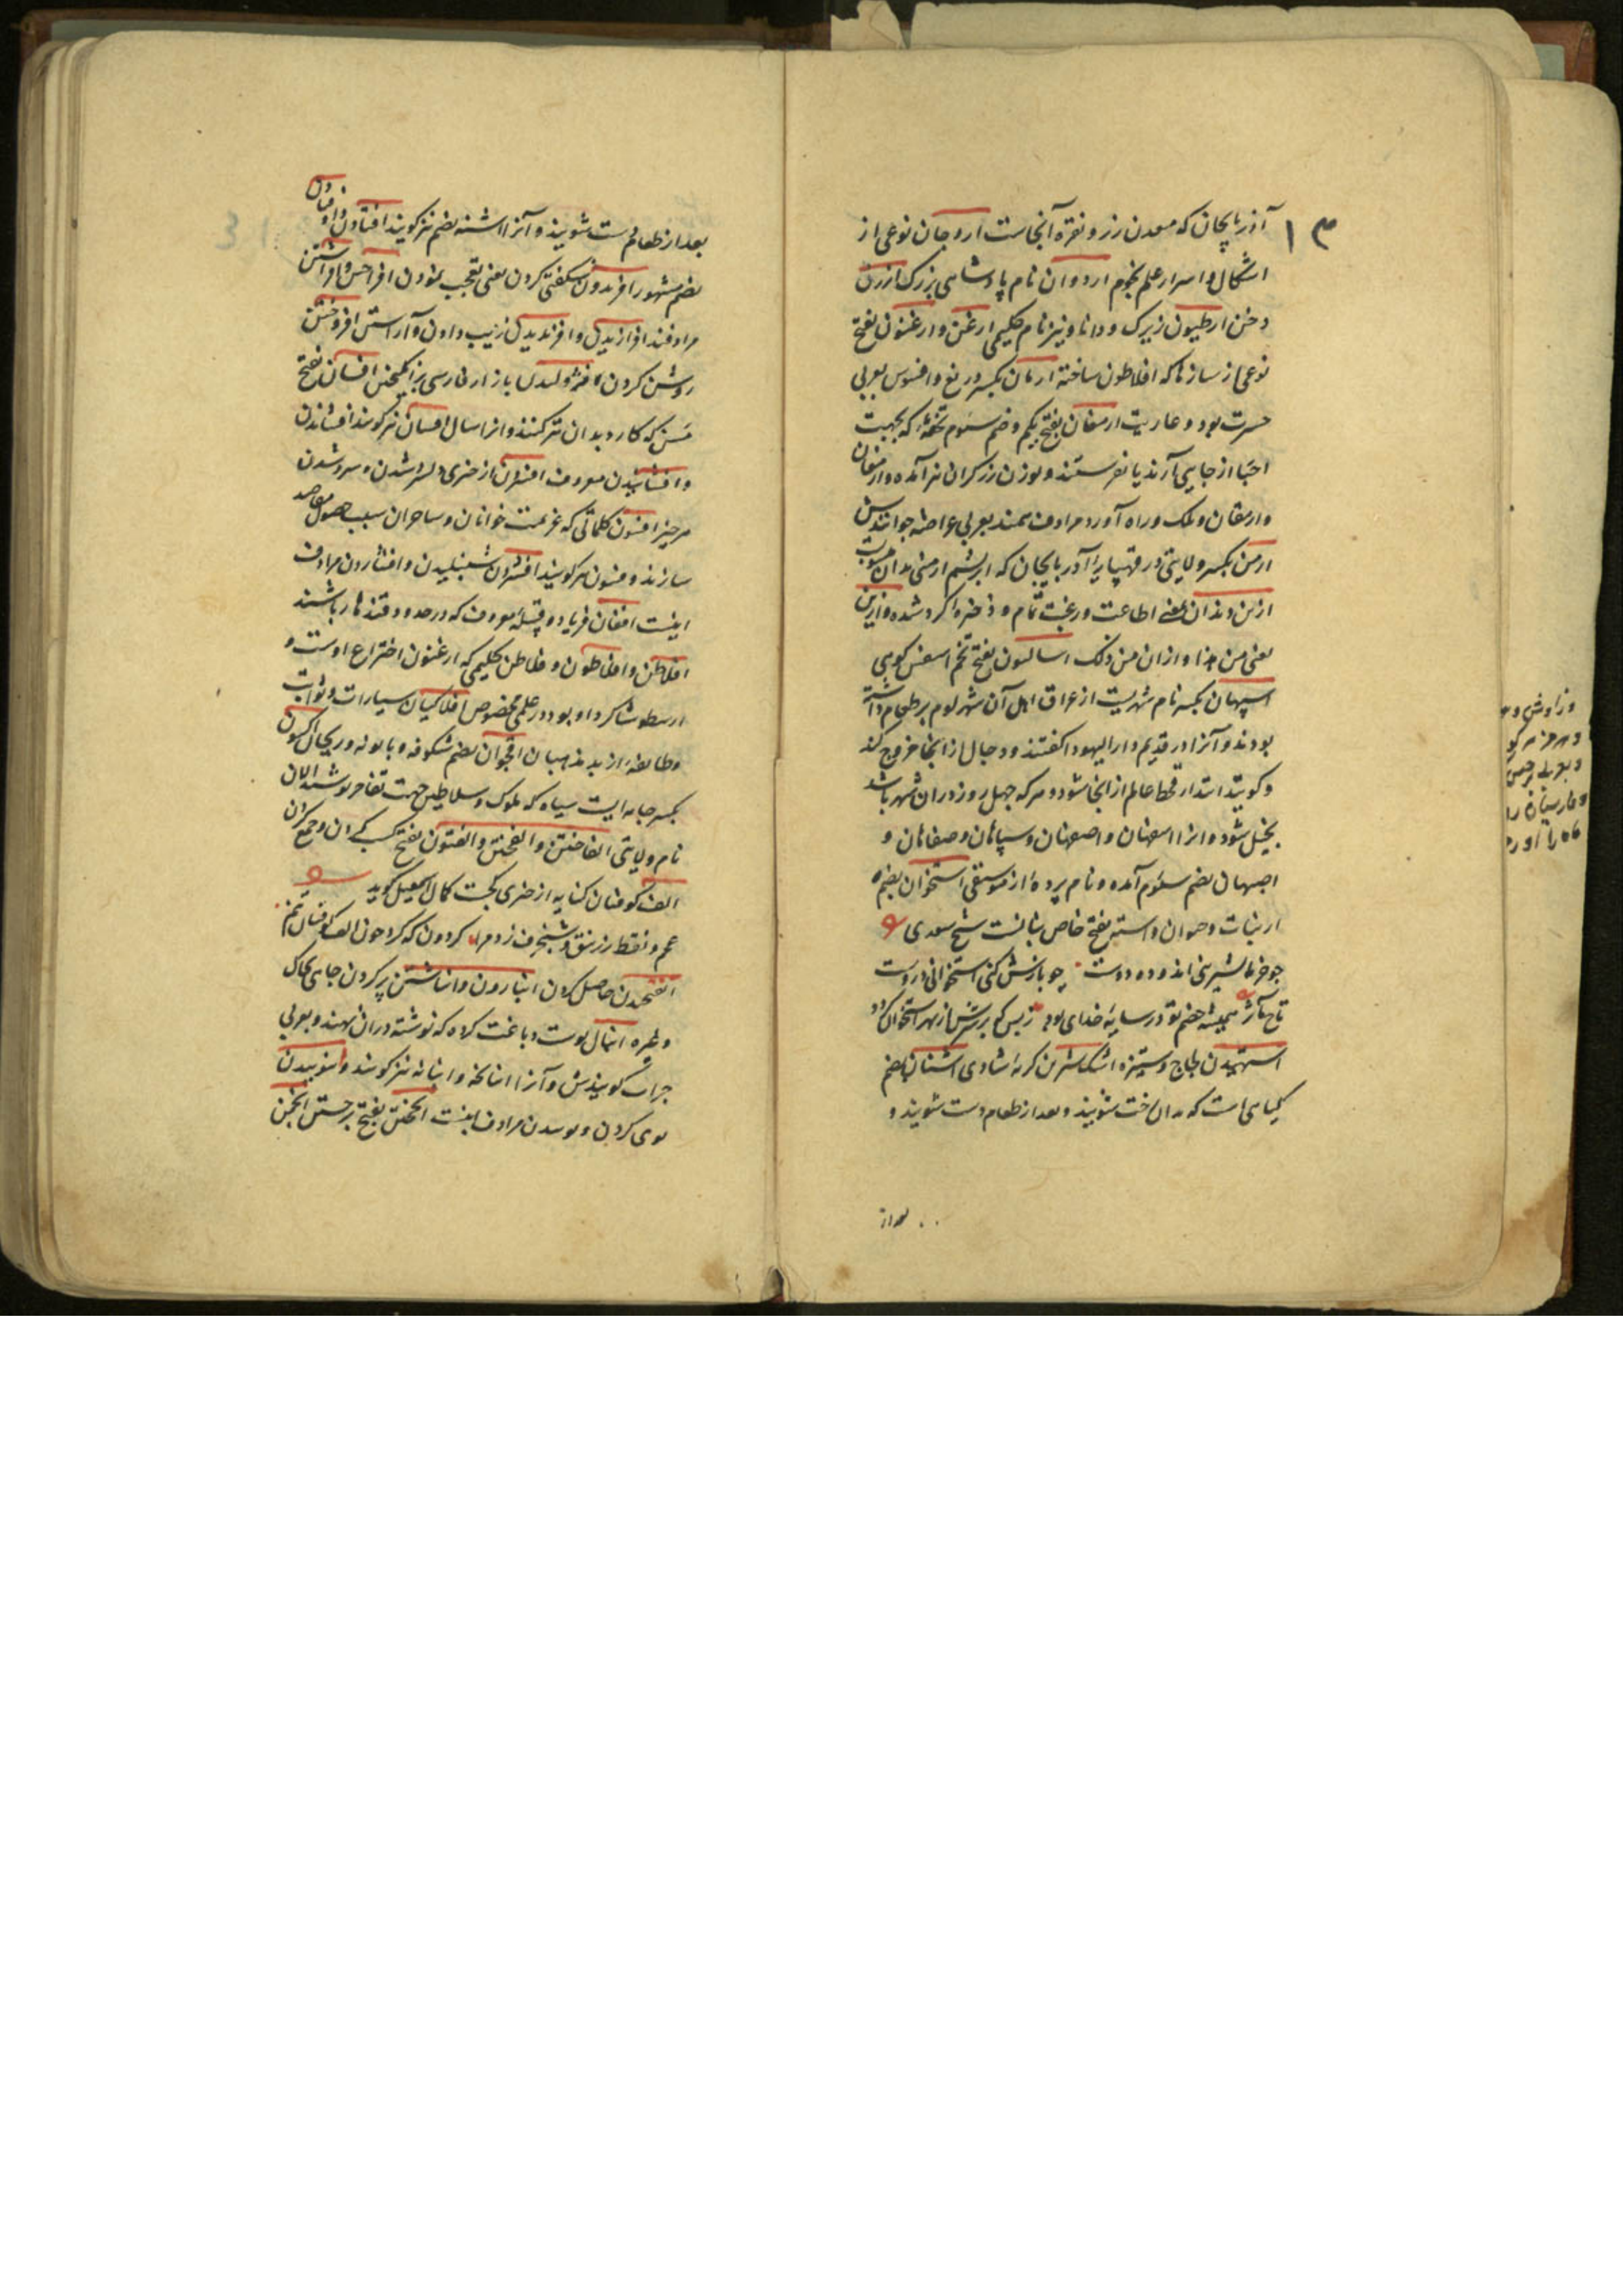 ۱۳
آذربایجان که معدن زر و نقره آنجاست اروجان نوعی از
اشکال و اسرار علم نجوم اردوان نام پادشاهی بزرک ارزن
دخن ارطیون زیرک و دانا و نیز نام حکیمی ارغن و ارغنون بفتح
نوعی از سازها که افلاطون ساخته ارمان بکسر دریغ و افسوس بعربی
حسرت بود و عاریت ارمغان بفتح یکم و ضم سئوم تحفهٔ که بجهت
احبا از جایی آرند یا بفرستند و بوزن زرکران نیز آمده و ارمغان
و ارمقان و لک و راه آورد مرادف همند بعربی عراضه خوانندش
ارمن بکسر ولایتی در قهپایهٔ آذربایجان که ابریشم ارمنی بدان منسوب
ازین دندان یعنی اطاعت و رغبت تمام و ذخیره کرد شده و ازین
یعنی من هذا و ازان من ذلک اسالیون بفتح تخم کرفس کوهی
اسپهان بکسر نام شهریست از عراق اهل آن شهر لوم بر طعام داشته
بودند و آنرا در قدیم دار الیهود اکفتند و دجال از انجا خروج کند
و کویند ابتدا قحط عالم از انجا شود و هر که چهل روز دران شهر باشد
بخیل شود و انرا اسفهان و اصفهان و سپاهان و صفاهان و
اصبهان بضم سئوم آمده و نام پردهٔ از موسیقی استخوان بضم
از نبات و حیوان و استه بفتح خاص نباتست شیخ سعدی
چو خرما بشیرینی اندوده دوست چو بازش کنی استخوانی دروست
تاج مآثر همیشه خصم تو در سایهٔ خدای بود ز بس که بر سرش از بهر استخوان کردد
استهیدن لجاج و ستیزه اشک شیرین کریهٔ شادی اشنان بضم
کیاهی است که بدان رخت شویند و بعد از طعام دست شویند و
بعد از
بعد از طعام دست شویند و آنرا اشنه بضم نیز کویند افتادن و اوفتادن
بضم مشهور افدیدن شکفتی کردن یعنی تعجب نمودن افراختن و افراشتن
مرادفند افرازیدن و افرندیدن زیب دادن و آراستن افروختن
روشن کردن افژولیدن با زاء فارسی برانکیختن افسان بفتح
مسن که کارد بدان تیز کنند و انرا سان افسان نیز کویند افشاندن
و افشانیدن معروف افسردن از چیزی دلسرد شدن و سرد شدن
هر چیز افسون کلماتی که عزیمت خوانان و ساحران سبب حصول مقاصد
سازند و فسون نیز کویند افشردن شپیلیدن و افشاردن مرادف
اینست افغان فریاد و قبیلهٔ معروف که در حدود قندهار باشند
افلاطن و افلاطون و فلاطن حکیمی که ارغنون اختراع اوست و
ارسطو شاکرد او بود در علمی مخصوص افلاکیان سیارات و ثوابت
و طایفه از بد مذهبان اقحوان بضم شکوفه و بابونه و ریحان اکسون
بکسر جامه ایست سیاه که ملوک و سلاطین جهت تفاخر پوشند الان
نام ولایتی الفاختن و الفختن و الفتون بفتح کسب کردن و جمع کردن
الف کوفیان کنایه از چیزی کج است کمال اسمعیل کوید
کردون که کرد چون الف کوفیان خم
الفخدن حاصل کردن انباردن و انباشتن پر کردن جای بخاک
و غیره انبان پوست دباغت کرده که توشه دران نهند و بعربی
جراب کویندش و آنرا انبانچه و انبانه نیز کویند و انبوییدن
بوی کردن و بوییدن مرادف اینست انجختن بفتح برجستن انجمن